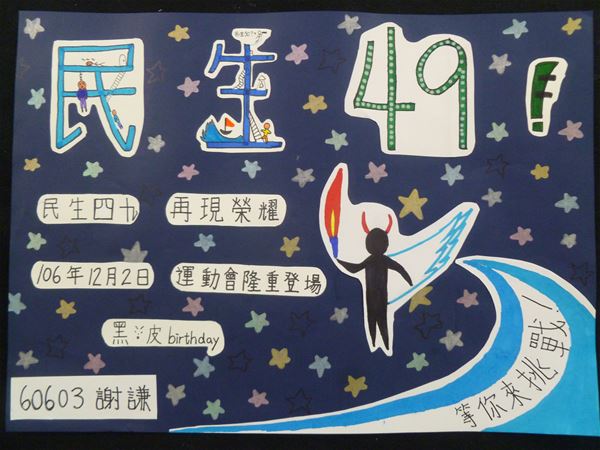 民生 49!
民生四九 再現榮耀
106年12月2日 運動會隆重登場
黑皮 birthday
等你來挑戰！
60603 謝謙